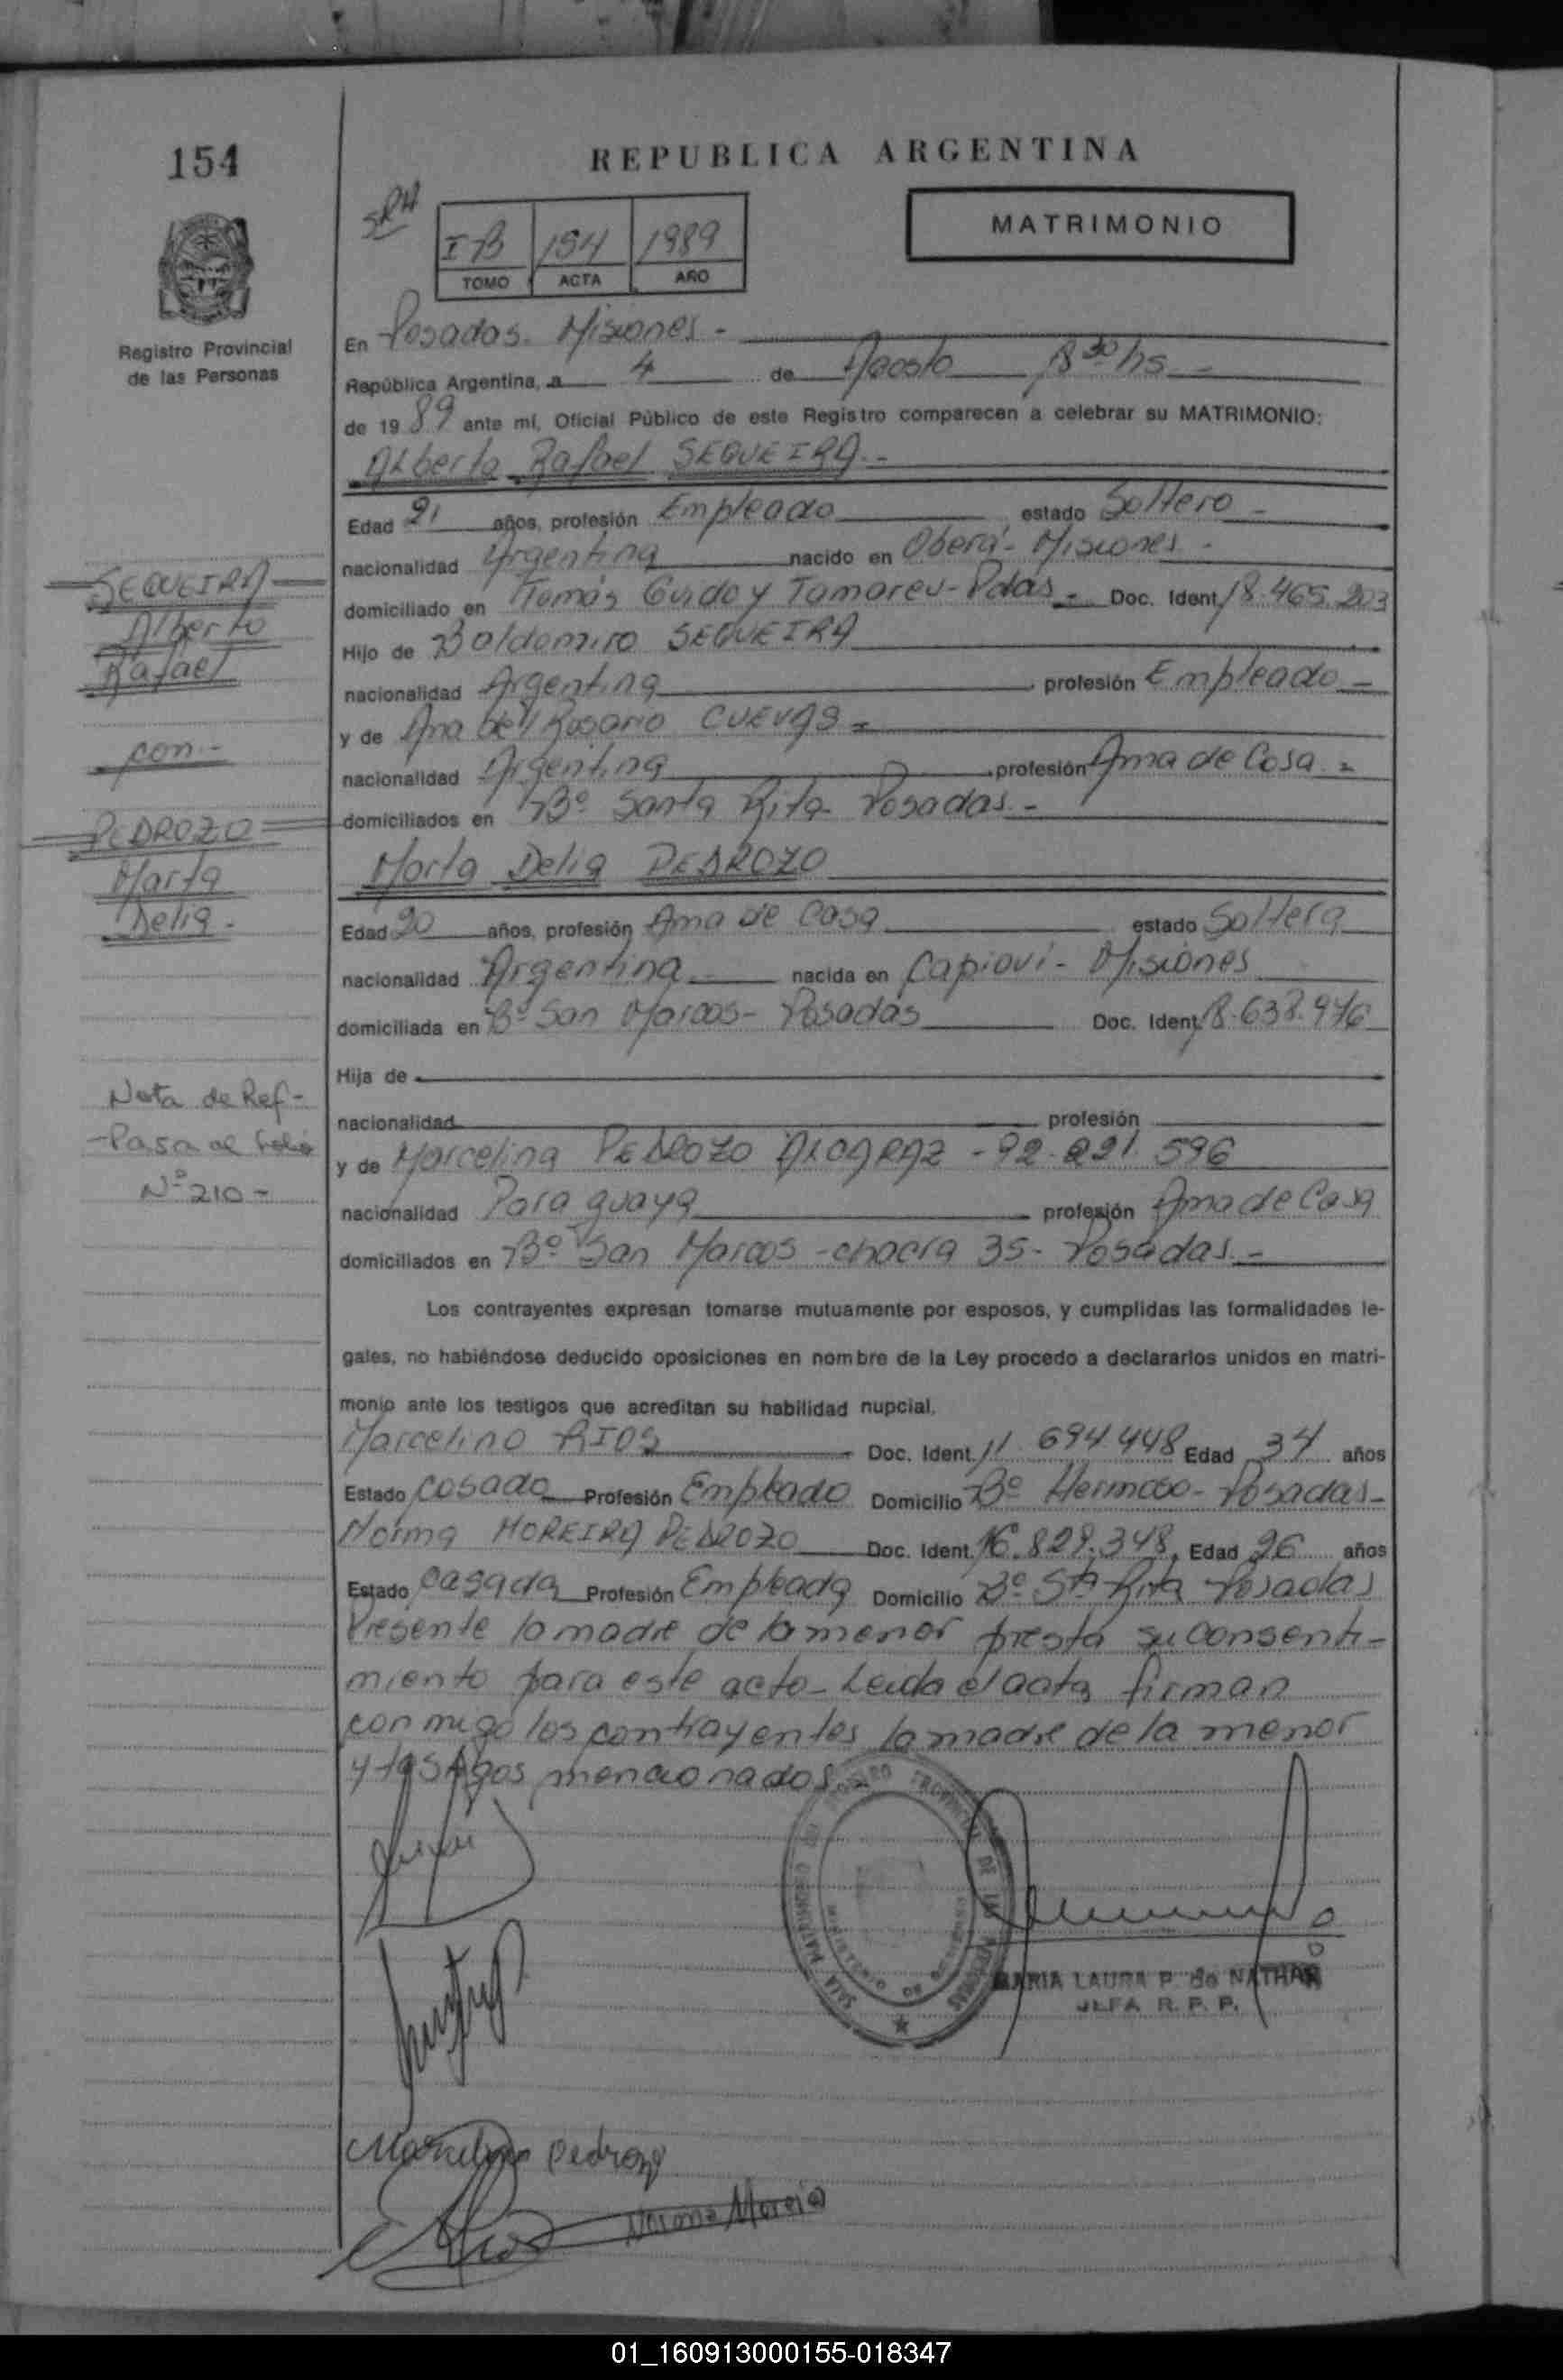 154
REPUBLICA ARGENTINA
SRA
I B 154 1989
TOMO ACTA AÑO
MATRIMONIO
Registro Provincial
de las Personas
En Posadas. Misiones -
República Argentina, a 4 de Agosto 8 30 hs -
de 1989 ante mi, Oficial Público de este Registro comparecen a celebrar su MATRIMONIO:
Alberto Rafael SEQUEIRA -
Edad 21 años, profesión Empleado estado Soltero -
nacionalidad Argentina nacido en Oberá - Misiones -
domiciliado en Tomás Guido y Tamareu - Pdas - Doc. Ident. 18.465.203
Hijo de Baldomiro SEQUEIRA
nacionalidad Argentina profesión Empleado -
y de Ana del Rosario CUEVAS -
nacionalidad Argentina profesión Ama de Casa -
domiciliados en Bº Santa Rita Posadas -
Marta Delia PEDROZO
Edad 20 años, profesión Ama de Casa estado Soltera
nacionalidad Argentina nacida en Capioví - Misiones
domiciliada en Bº San Marcos - Posadas Doc. Ident. 18.638.946
Hija de
nacionalidad profesión
y de Marcelina PEDROZO ALCARAZ - 92.221.596
nacionalidad Paraguaya profesión Ama de Casa
domiciliados en Bº San Marcos - chacra 35 - Posadas. -
Los contrayentes expresan tomarse mutuamente por esposos, y cumplidas las formalidades le-
gales, no habiéndose deducido oposiciones en nombre de la Ley procedo a declararlos unidos en matri-
monio ante los testigos que acreditan su habilidad nupcial.
Marcelino RIOS Doc. Ident. 11.694.448 Edad 34 años
Estado Casado Profesión Empleado Domicilio Bº Hermoso - Posadas -
Norma MOREIRA PEDROZO Doc. Ident. 16.829.348. Edad 26 años
Estado Casada Profesión Empleada Domicilio Bº Sta Rita Posadas
Presente la madre de la menor presta su consenti-
miento para este acto - Leida el acta firman
conmigo los contrayentes la madre de la menor
y testigos mencionados. -
SEQUEIRA
Alberto
Rafael
con -
PEDROZO
Marta
Delia -
Nota de Ref -
- Pasa al folio
Nº 210 -
REGISTRO PROVINCIAL DE LAS PERSONAS
MARIA LAURA P. de NATHAN
JEFA R. P. P.
Marcelina Pedrozo
Norma Moreira
01_160913000155-018347